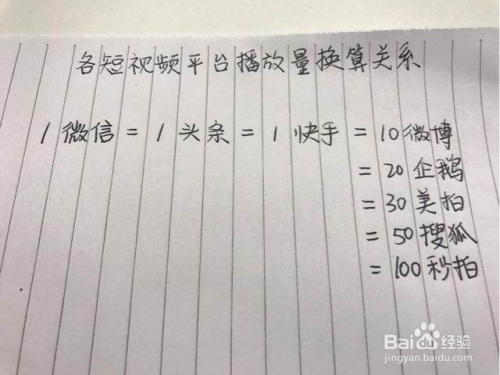 各短视频平台播放量换算关系
1微信=1头条=1快手=10微博
=20企鹅
=30美拍
=50搜狐
=100秒拍
Bai du 经验
jingyan.baidu.com